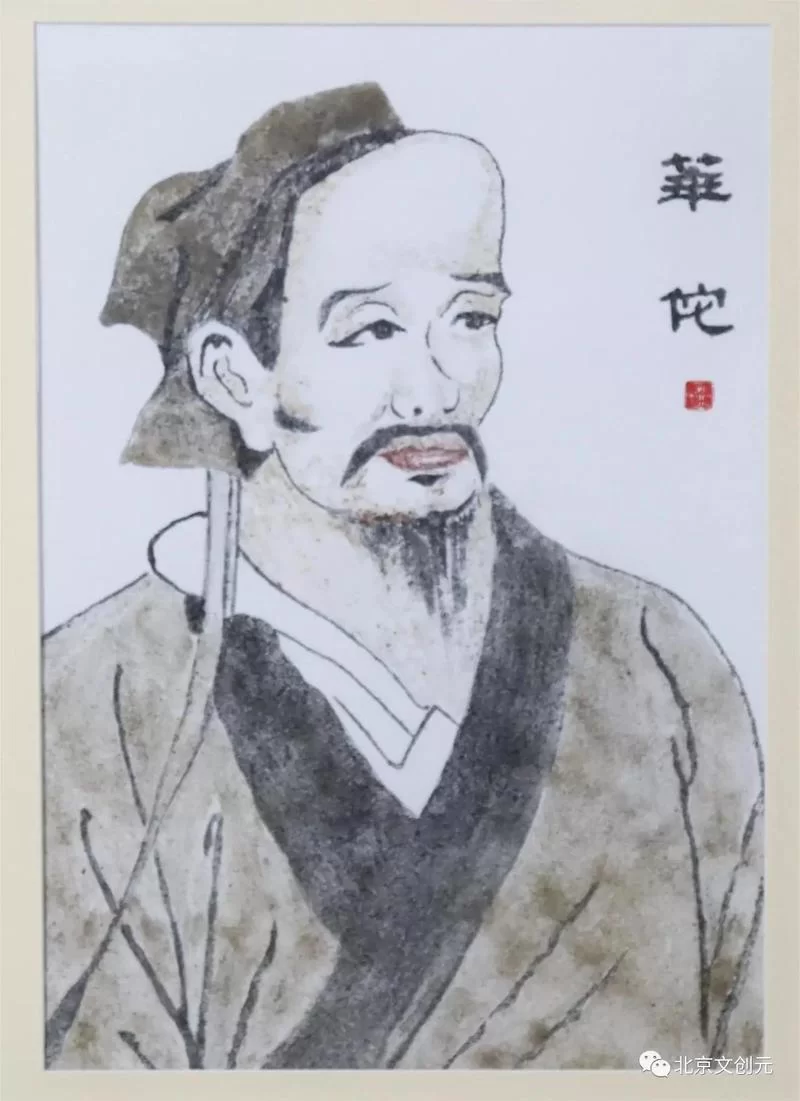 華
佗
北京文创元